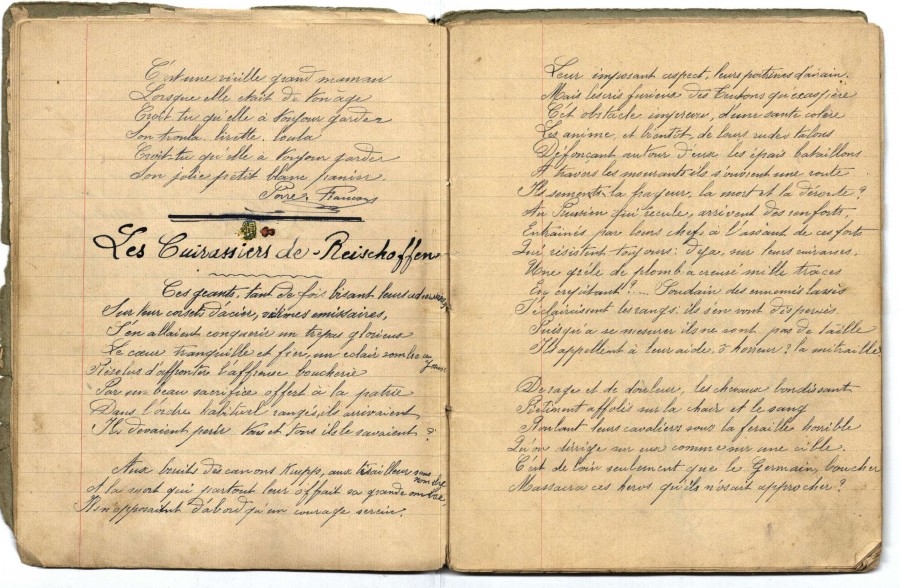 C'est une vieille grand maman
Lorsque elle était de son âge
Croit tu qu'elle à toujour garder
Son troula. lirette. loula
Croit-tu qu'elle à toujour garder
Son jolie petit blanc panier
Francois
Les Cuirassiers de Reischoffen
Ces geants, tant de fois bisant leurs adversaires
Sur leur corsets d'acier, victimes emissaires,
S'en allaient conquerir un trepas glorieux
Le cœur tranquille et fier, un eclair sombre aux yeux
Résolus d'affronter l'affreuse boucherie
Par un beau sacrifice offert à la patrie
Dans l'ordre habituel rangés, ils arrivaient
Ils devaient perir tous et tous ils le savaient ?
Aux bruits des canons Krupps, aux tirailleurs sans nombre
A la mort qui partout leur offrait sa grande ombre,
N'en opposaient d'abord qu'un courage serein.
Leur imposant aspect, leurs poitrines d'airain.
Mais les cris furieux des teutons qu'exaspère
Cet obstacle imprevu, d'une sante colère
Les anime, et bientôt, de leurs rudes talons
Défonçant autour d'eux les épais bataillons
A travers les mourants ils s'ouvrent une route
Ils sement la frayeur, la mort et la déroute ?
Au Prussien qui recule, arrivent des renforts.
Entrainés par leurs chefs à l'assaut de ces forts
Qui résistent toujours : Deja, sur leurs cuirasses,
Une grêle de plomb a creusé mille traces
En crépitant ? ... Soudain des ennemis lassés
S'éclaircissent les rangs. ils s'en vont disperses.
Puisqu'a se mesurer ils ne sont pas de taille
Ils appellent à leur aide, ô horreur ? la mitraille
De rage et de douleur, les chevaux bondissant
Pietinent affolés sur la chair et le sang
Roulant leurs cavaliers sous la feraille horrible
Qu'on dirrige sur eux comme sur une cible.
C'est de loin seulement que le Germain, boucher
Massacra ces heros qu'ils n'osait approcher ?